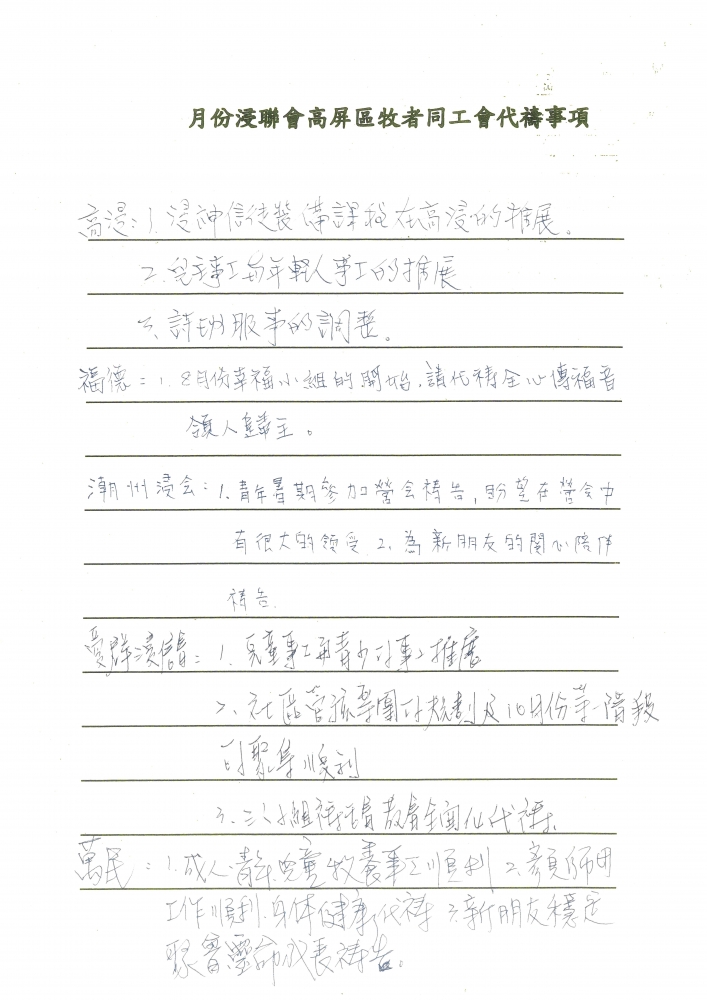 月份浸聯會高屏區牧者同工會代禱事項
高浸：1. 浸神信徒裝備課程在高浸的推展。
2. 兒主事工與年輕人事工的推展
3. 詩班服事的調整。
福德：1. 8月份幸福小組的開始，請代禱全心傳福音
領人歸主。
潮州浸会：1. 青年暑期參加營会禱告，盼望在營会中
有很大的領受 2. 為新朋友的関心陪伴
禱告.
愛群浸信：1. 兒童事工與青少的事工推展
2. 社區管弦樂團的規劃及10月份第一階段
的聚集順利
3. 三人小組禱告
萬民：1. 成人.青年.兒童牧養事工順利 2. 顏師母
工作順利.身体健康代禱 3. 新朋友穩定
聚會靈命成長禱告。